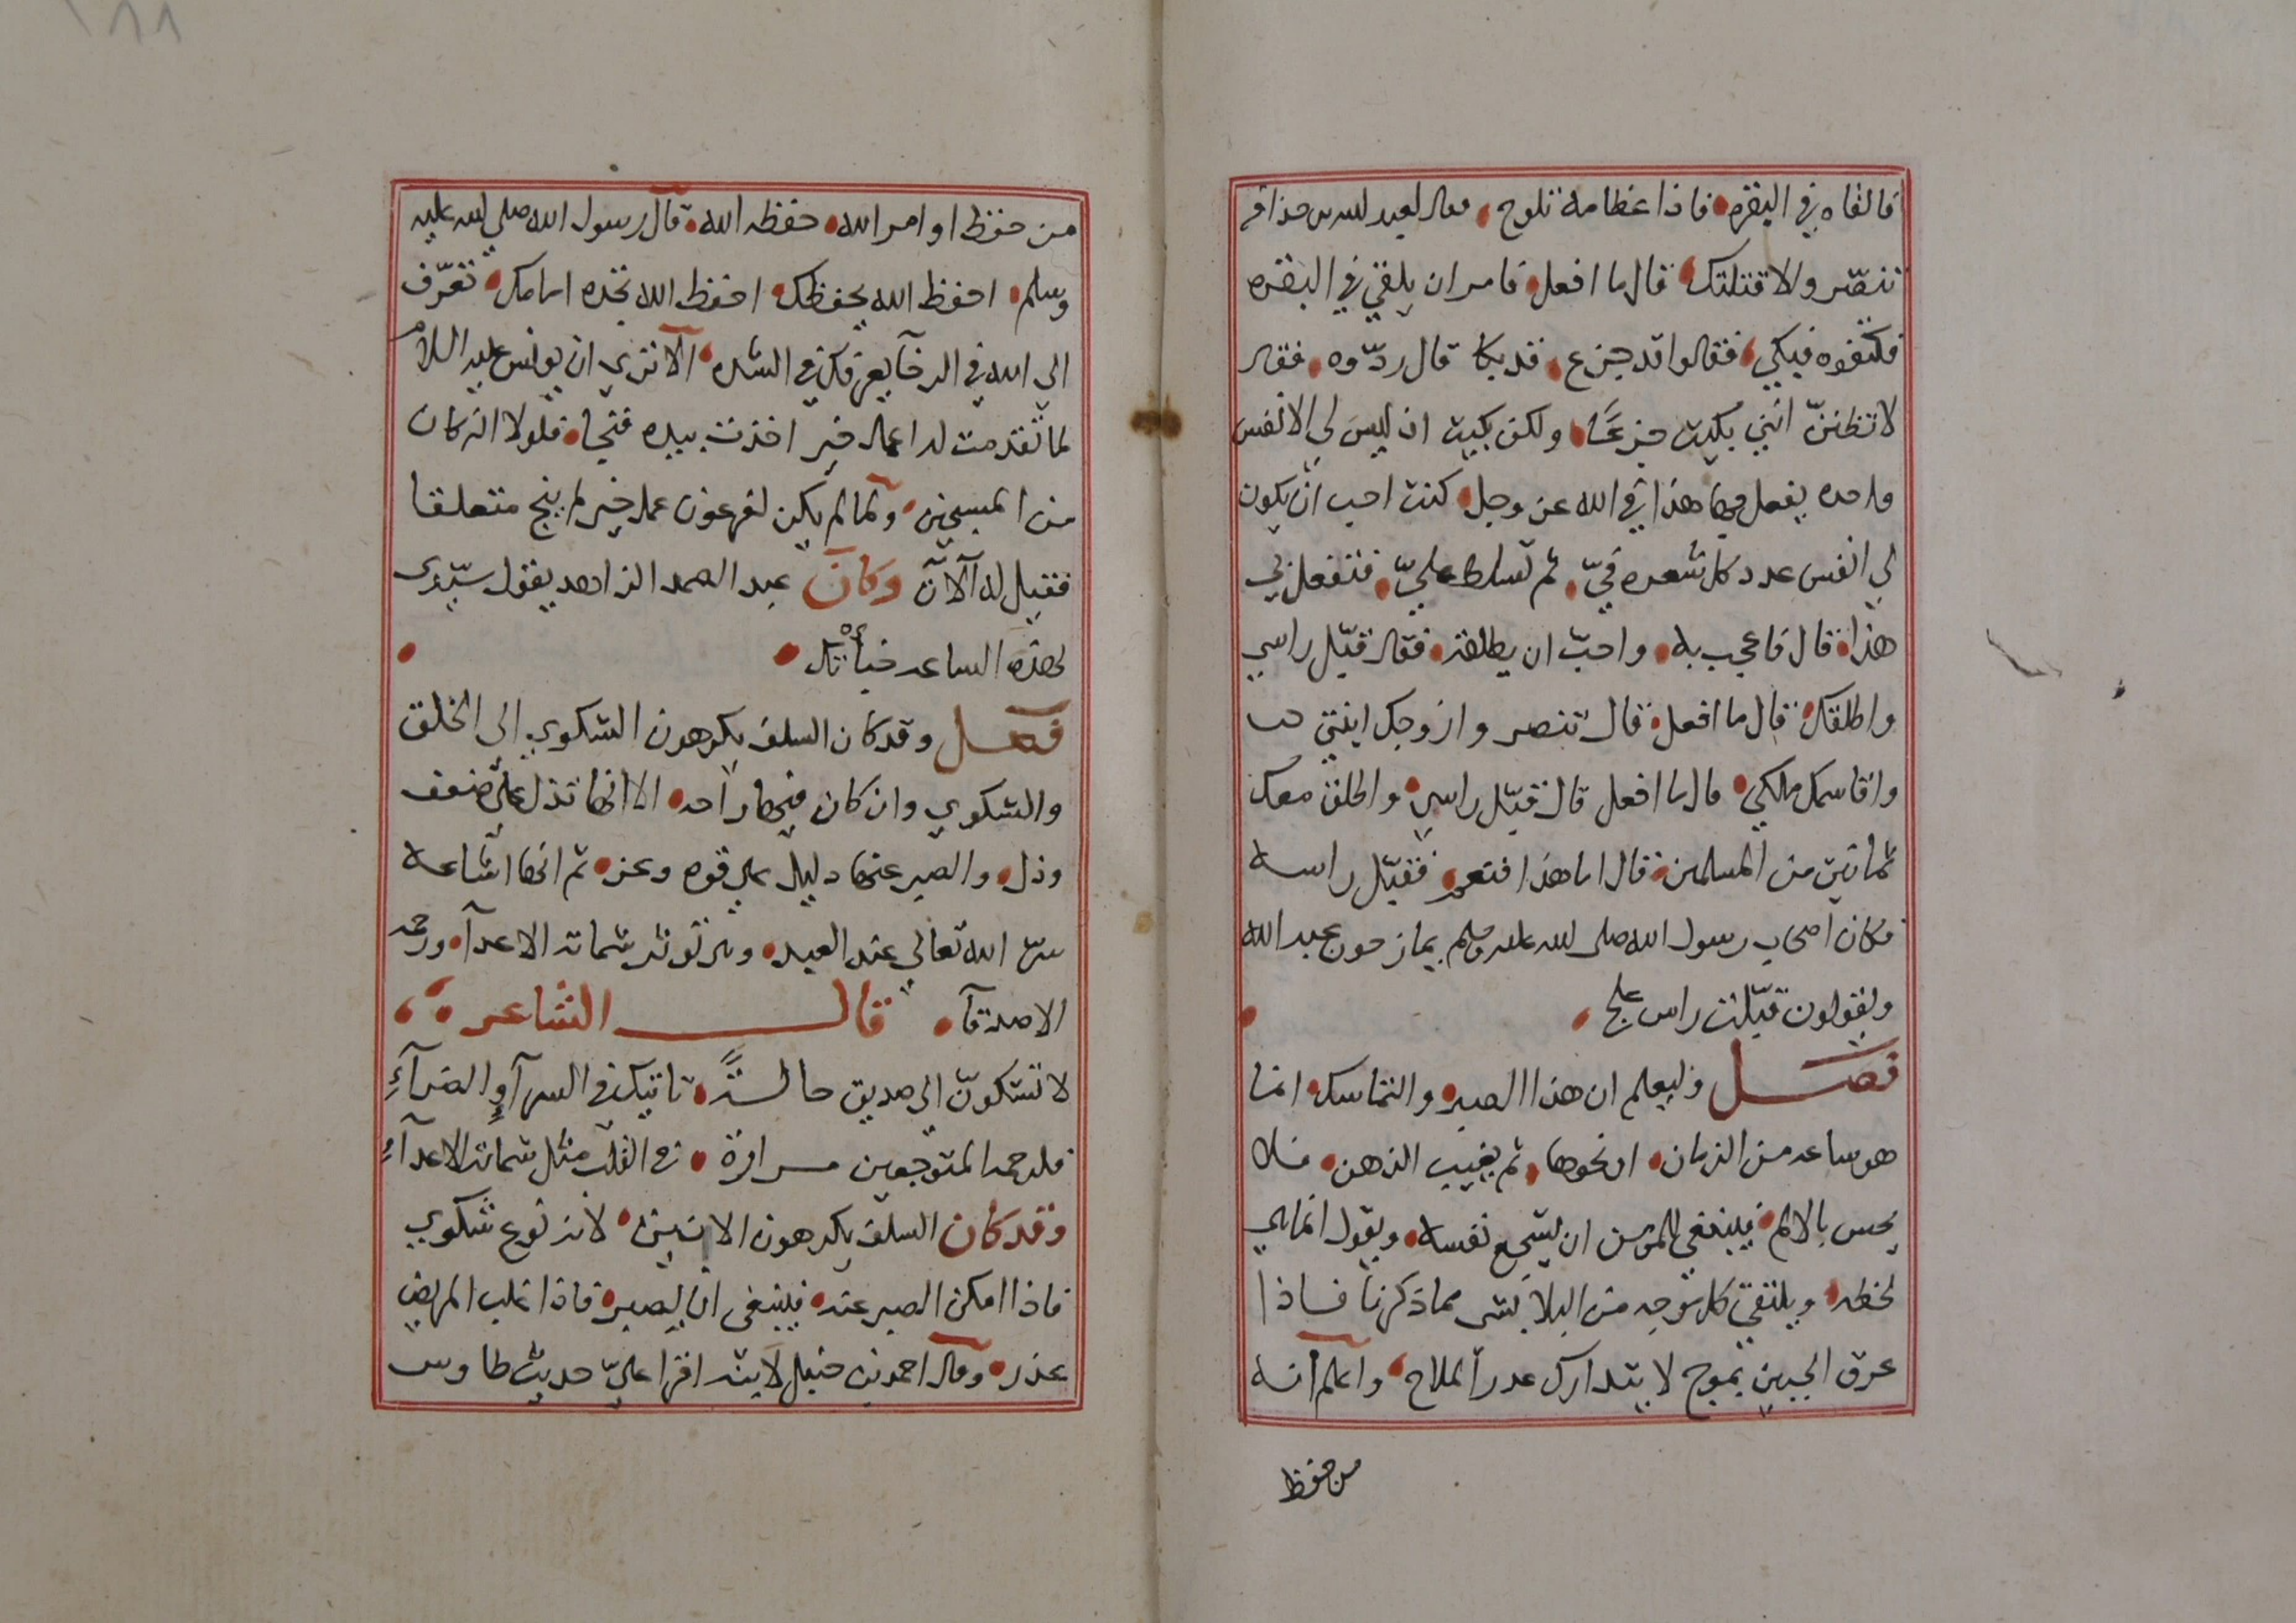 فالقاه في البقره فاذا عظامه تلوح وقال لعبد الله بن حذافه
تنصّر والا قتلتك قال ما افعل فامر ان يلقي في البقره
فكتفوه فبكي فقالوا قد جزع قد بكا قال ردّوه فقال
لا تظننّ انني بكيت جزعًا ولكن بكيت ان ليس لي الا نفس
واحده يفعل بها هذا في الله عز وجل كنت احب ان يكون
لي انفس عدد كل شعره فيّ ثم تسلط عليّ فتفعل بي
هذا قال فاعجب به واحبّ ان يطلقه فقال قبّل راسي
واطلقك قال ما افعل قال تنصر وازوجك ابنتي
واقاسمك ملكي قال ما افعل قال قبّل راسي واطلق معك
ثمانين من المسلمين قال اما هذا فنعم فقبّل راسه
فكان اصحاب رسول الله صلى الله عليه وسلم يمازحون عبد الله
ويقولون قبّلت راس علج
فصل وليعلم ان هذا الصبر والتماسك انما
هو ساعه من الزمان او نحوها ثم يغيب الذهن فلا
يحس بالالم فينبغي للمؤمن ان يشجع نفسه ويقول انما هي
لحظه ويلتقي كل موجه من البلا بشي مما ذكرنا فاذا
عرق الجبين بموج لا يتدارك عدر الملاح واعلم انه
من حفظ
من حفظ اوامر الله حفظه الله قال رسول الله صلى الله عليه
وسلم احفظ الله يحفظك احفظ الله تجده امامك تعرّف
الي الله في الرخآ يعرفك في الشده الا تري ان يونس عليه السلام
لما تقدمت له اعمال خير اخذت بيده فنجا فلولا انه كان
من المسبحين ولما لم يكن لفرعون عمل خير لم ينج متعلقا
فقيل له آلآن وكان عبد الصمد الزاهد يقول سيّدى
لهذه الساعه خبأتك
فصل وقد كان السلف يكرهون الشكوي الى الخلق
والشكوي وان كان فيها راحه الا انها تدل على ضعف
وذل والصبر عنها دليل على قوه وعز ثم انها اشاعه
سر الله تعالي عند العبد وهي تورث شماته الاعدآ ورحمه
الاصدقآ قال الشاعر
لا تشكونّ الي صديق حالـةً تاتيك في السرآ والضرآءِ
فلرحمه المتوجعين مرارة في القلب مثل شماته الاعدآءِ
وقد كان السلف يكرهون الانين لانه نوع شكوي
فاذا امكن الصبر عنه فينبغي ان يصبر فاذا غلب المريض
عذر وقال احمد بن حنبل لابنه اقرا عليّ حديث طاوس
١٨٨